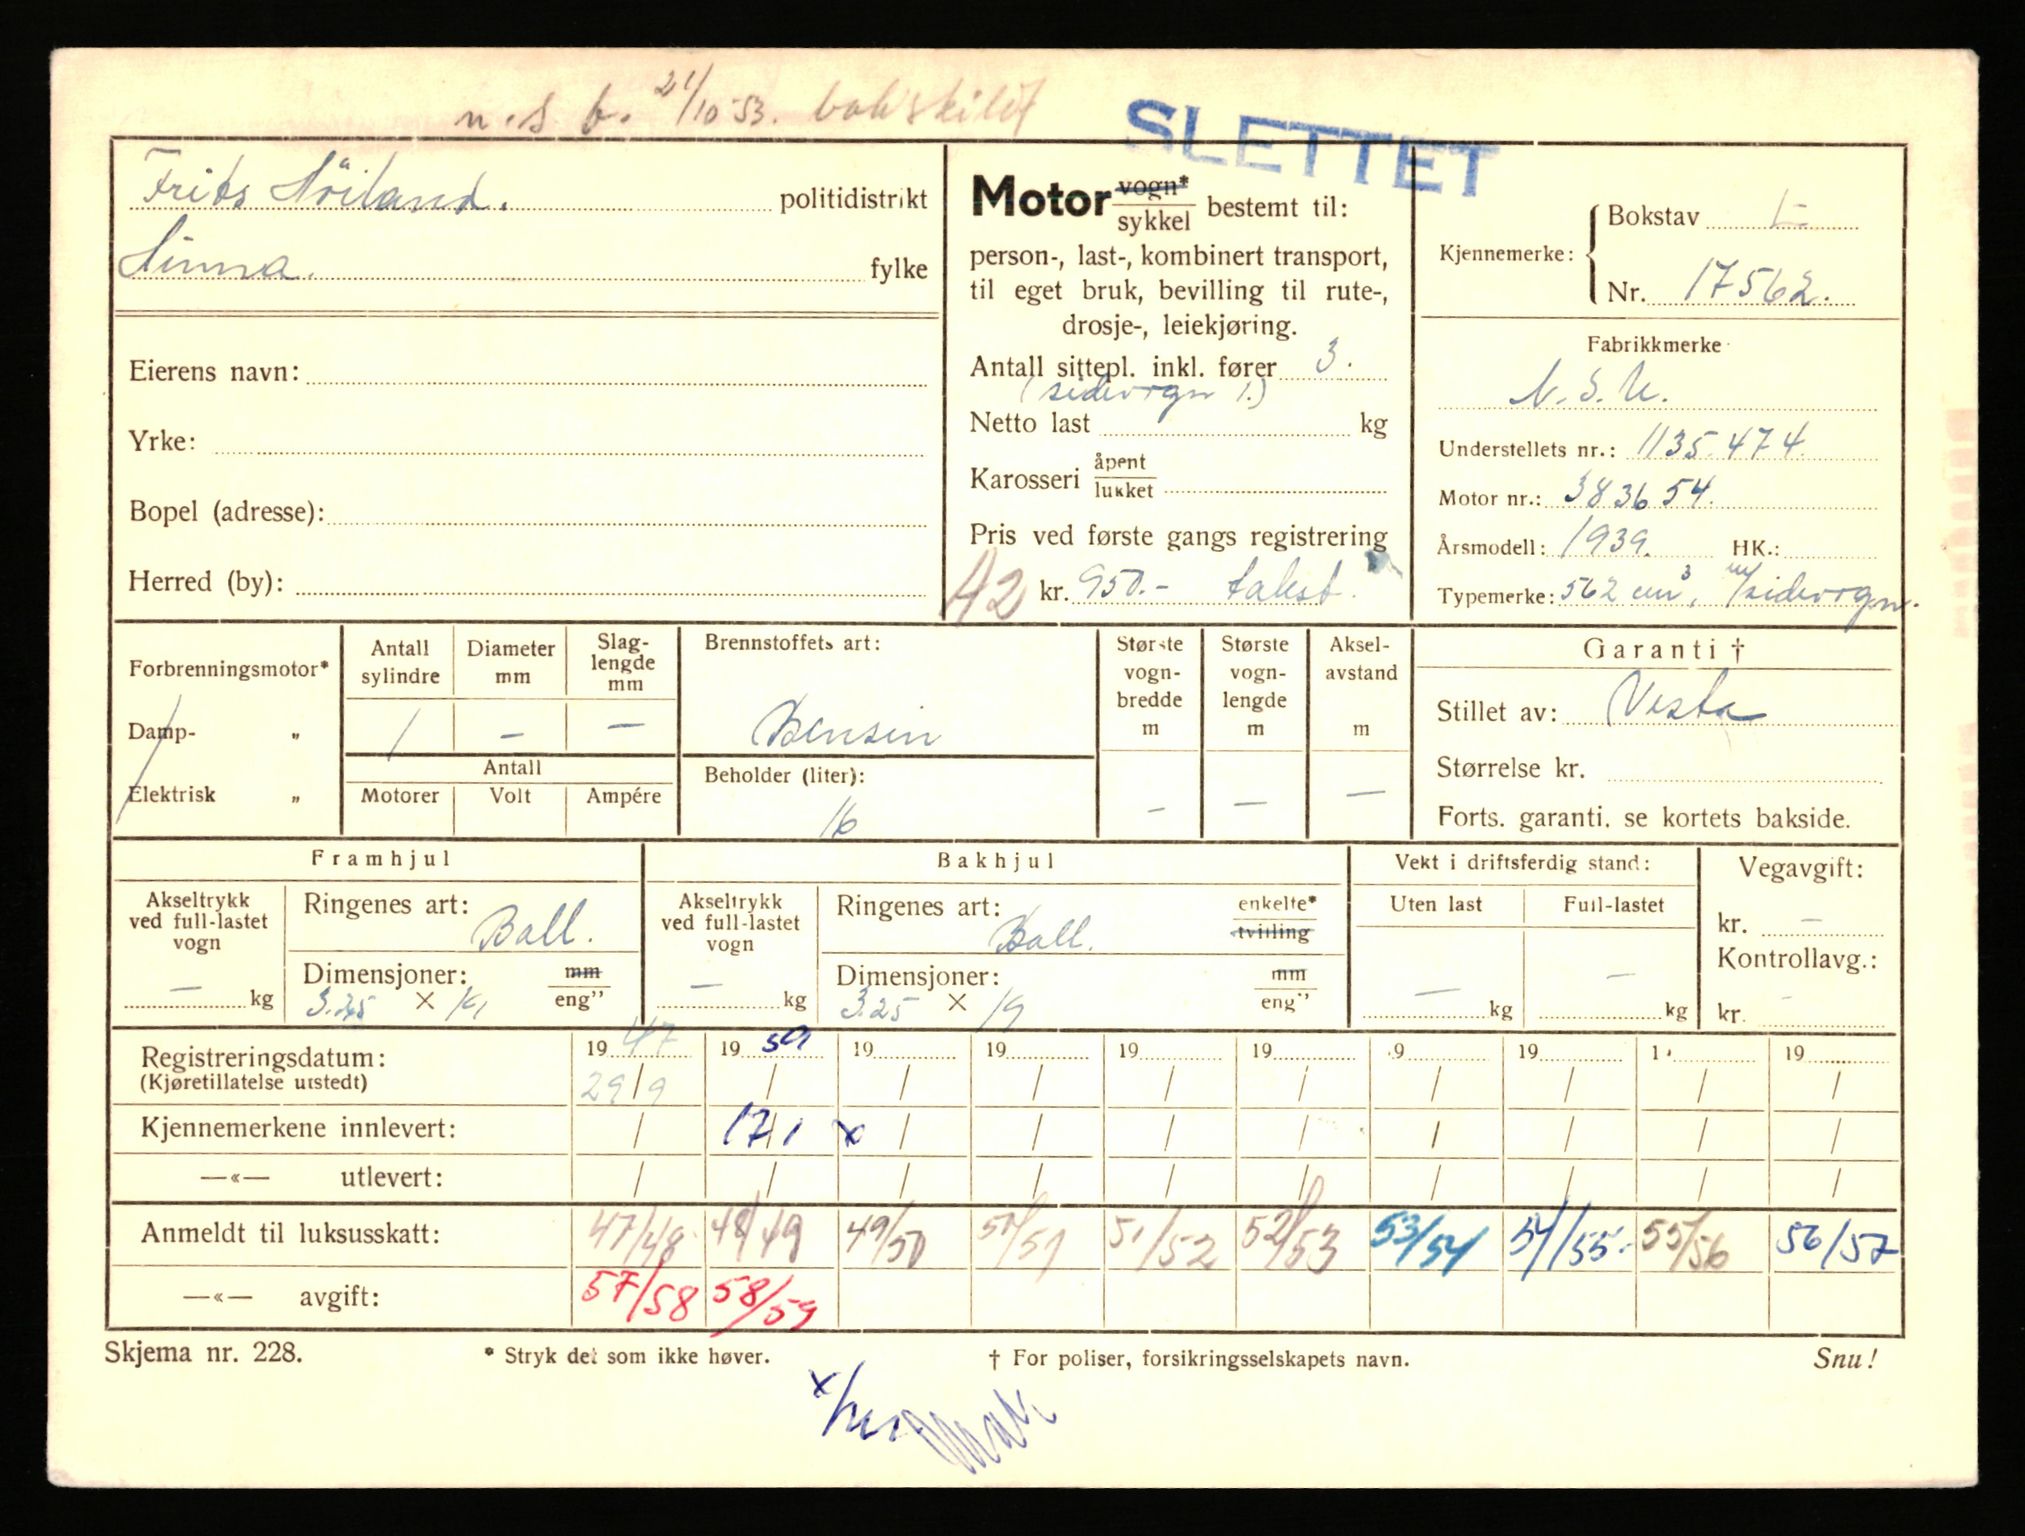 n.s.b. 21/10 53. bakskilt
SLETTET
Frits Höiland. politidistrikt
Hinna. fylke
Eierens navn:
Yrke:
Bopel (adresse):
Herred (by):
Motor vogn* sykkel bestemt til:
person-, last-, kombinert transport,
til eget bruk, bevilling til rute-,
drosje-, leiekjøring.
Antall sittepl. inkl. fører 3.
(sidevogn 1.)
Netto last kg
Karosseri åpent lukket
Pris ved første gangs registrering
A2 kr. 950.- takst.
Kjennemerke: Bokstav L
Nr. 17562.
Fabrikkmerke
N.S.U.
Understellets nr.: 1135.474.
Motor nr.: 383654.
Årsmodell: 1939. HK.:
Typemerke: 562 cm³, m/sidevogn.
Forbrenningsmotor*
Damp- „
Elektrisk „
Antall sylindre
Diameter mm
Slag-lengde mm
1 — —
Antall
Motorer Volt Ampére
Brennstoffets art:
Bensin
Beholder (liter):
16
Største vogn-bredde m
Største vogn-lengde m
Aksel-avstand m
— — —
Garanti †
Stillet av: Vesta
Størrelse kr.
Forts. garanti. se kortets bakside.
Framhjul
Akseltrykk ved full-lastet vogn
— kg
Ringenes art: Ball.
Dimensjoner: mm eng”
3.25 × 19
Bakhjul
Akseltrykk ved full-lastet vogn
— kg
Ringenes art: Ball. enkelte* tvilling
Dimensjoner: mm eng”
3.25 × 19
Vekt i driftsferdig stand:
Uten last Full-lastet
— kg — kg
Vegavgift:
kr. —
Kontrollavg.:
kr. -
Registreringsdatum: 19 47 19 59 19 19 19 19 19 19 1 19
(Kjøretillatelse utstedt) 29/9 / / / / / / / / /
Kjennemerkene innlevert: / 17/1 x / / / / / / / /
—«— utlevert: / / / / / / / / / /
Anmeldt til luksusskatt: 47/48 48/49 49/50 50/51 51/52 52/53 53/54 54/55. 55/56 56/57
—«— avgift: 57/58 58/59
Skjema nr. 228. * Stryk det som ikke høver. † For poliser, forsikringsselskapets navn. Snu!
x/